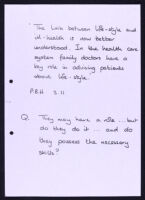 "The link between life-style and
ill-health is now better
understood. In the health care
system family doctors have a
key role in advising patients
about life-style.
P.E.H 3.11
Q. They may have a role... but
do they do it ... and do
they possess the necessary
skills?